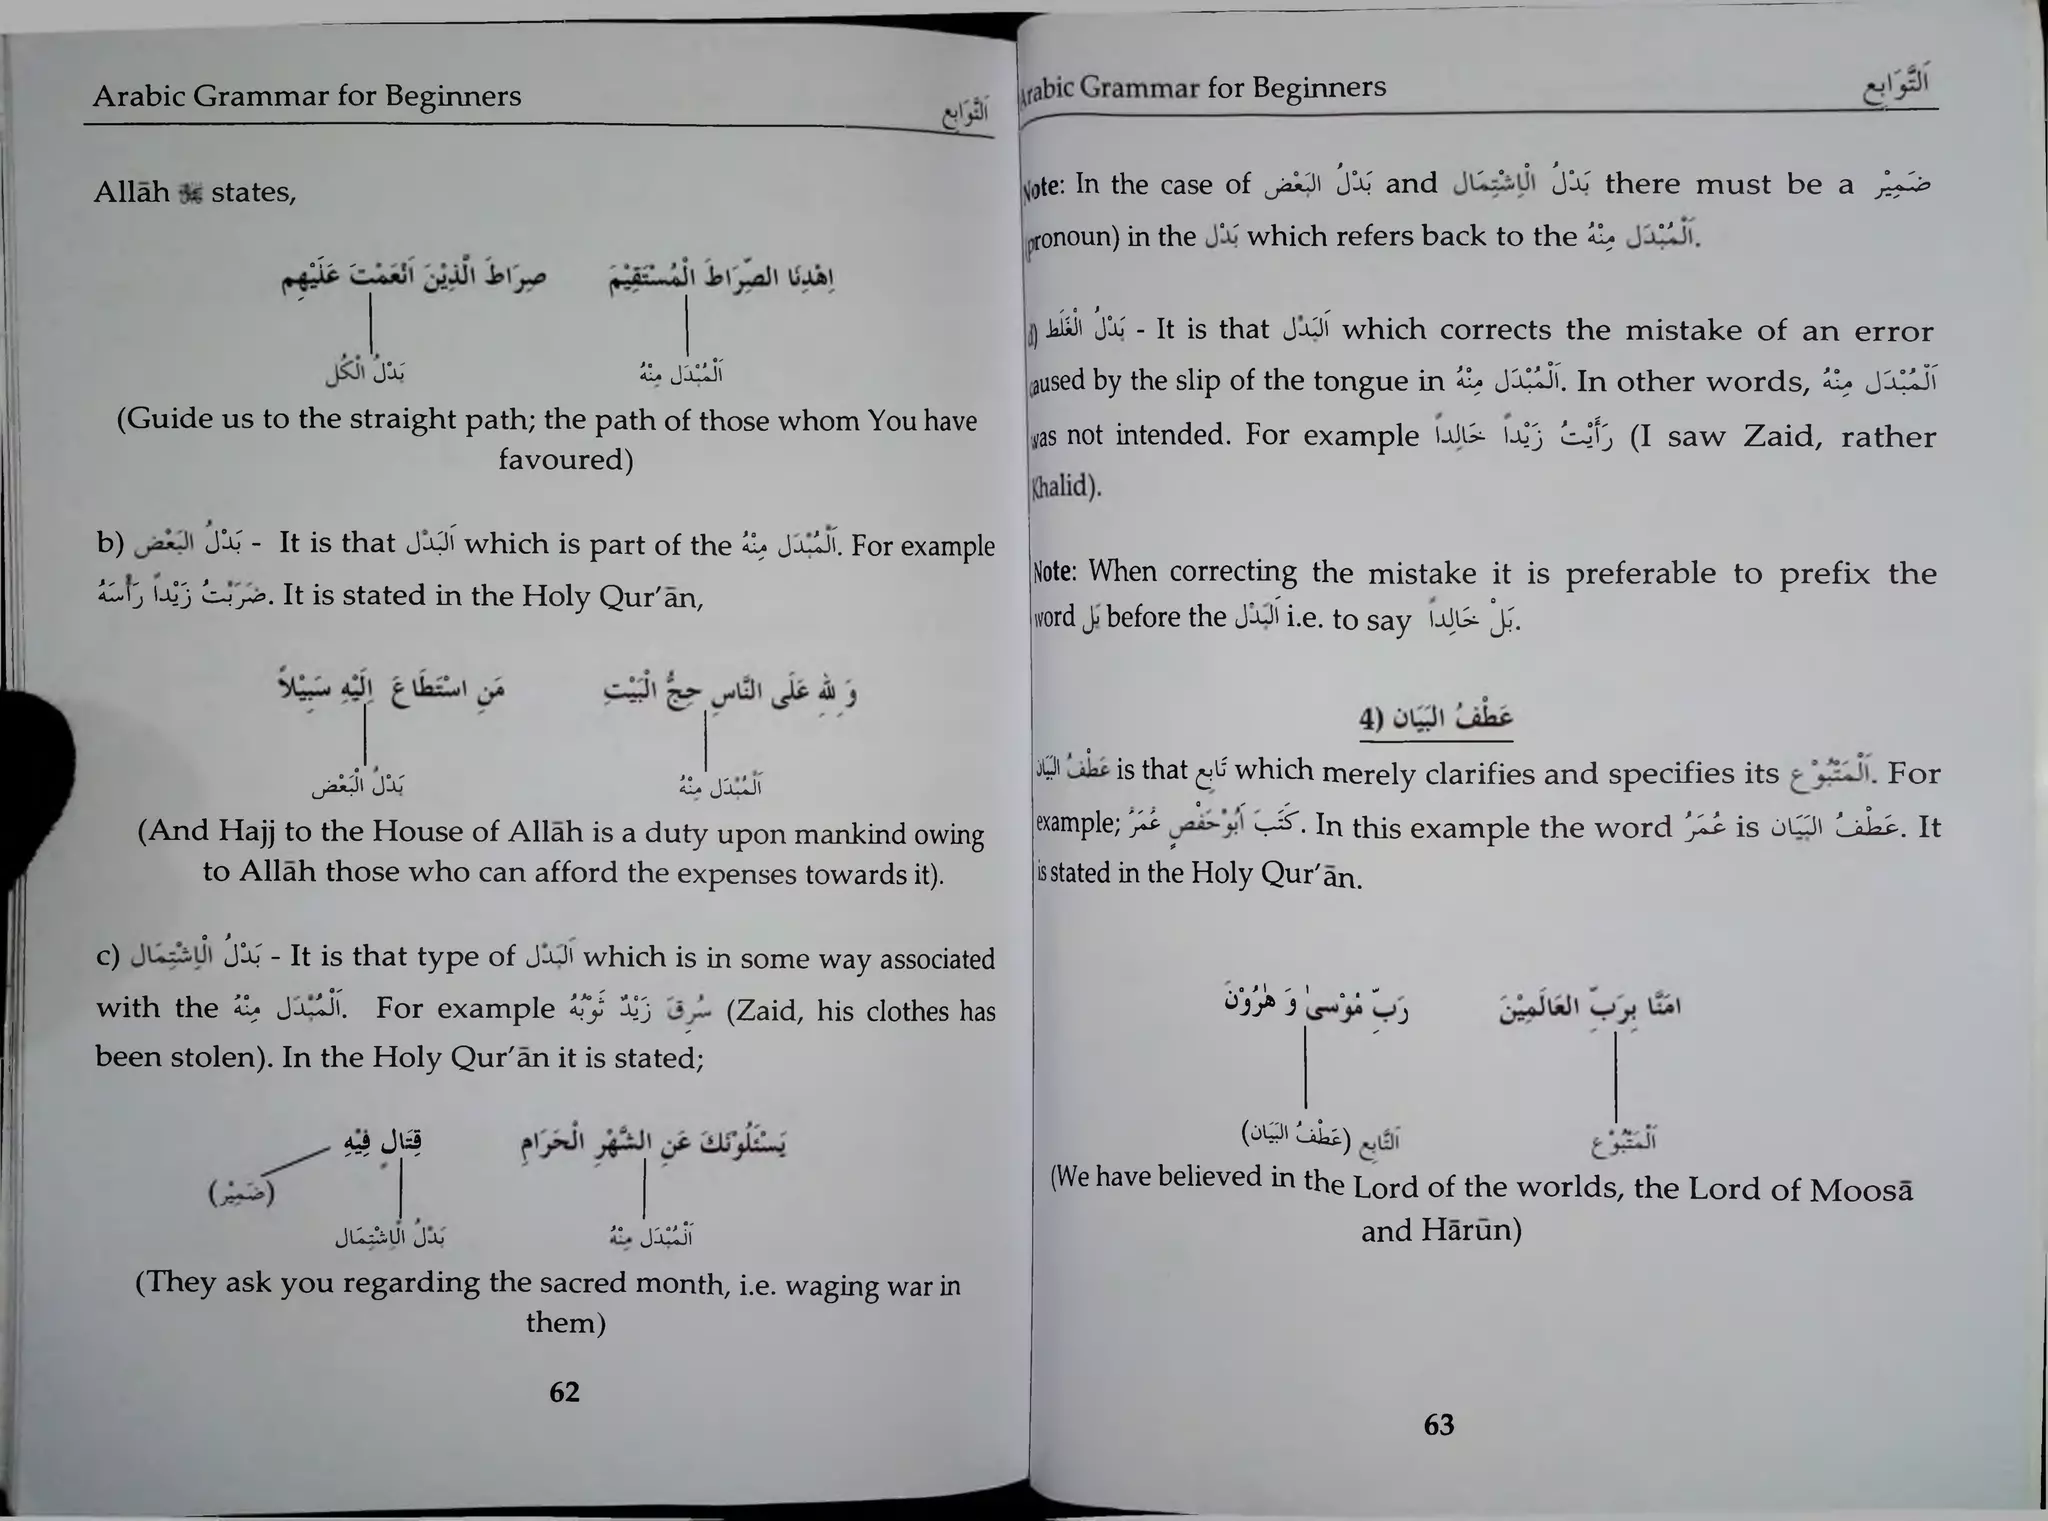 Arabic Grammar for Beginners
اَلتَّوَابِع
Allāh ﷻ states,
اِهْدِنَا الصِّرَاطَ الْمُسْتَقِيْمَ صِرَاطَ الَّذِيْنَ اَنْعَمْتَ عَلَيْهِمِ
اَلْمُبْدَل مِنْهُ بَدْلُ الْكُل
(Guide us to the straight path; the path of those whom You have
favoured)
b) بَدْلُ الْبَعْض - It is that اَلْبَدْل which is part of the اَلْمُبْدَل مِنْهُ. For example
ضَرَبْتُ زَيْداً رَأسَهُ. It is stated in the Holy Qur'ān,
وَ لِلّٰهِ عَلَى النَّاسِ حِجُّ الْبَيْتِ مَنِ اسْتَطَاعَ اِلَيْهِ سَبِيْلاً
اَلْمُبْدَل مِنْهُ بَدْلُ الْبَعْض
(And Hajj to the House of Allāh is a duty upon mankind owing
to Allāh those who can afford the expenses towards it).
c) بَدْلُ الْاِشْتِمَال - It is that type of اَلْبَدْل which is in some way associated
with the اَلْمُبْدَل مِنْهُ. For example سُرِقَ زَيْدٌ ثَوْبُهُ (Zaid, his clothes has
been stolen). In the Holy Qur'ān it is stated;
يَسْئَلُوْنَكَ عَنِ الشَّهْرِ الْحَرَامِ قِتَالٍ فِيْهِ
(ضَمِيْر)
اَلْمُبْدَل مِنْهُ بَدْلُ الْاِشْتِمَال
(They ask you regarding the sacred month, i.e. waging war in
them)
62
Arabic Grammar for Beginners
اَلتَّوَابِع
Note: In the case of بَدْلُ الْبَعْض and بَدْلُ الْاِشْتِمَال there must be a ضَمِيْر
(pronoun) in the بَدْل which refers back to the اَلْمُبْدَل مِنْهُ.
d) بَدْلُ الْغَلَط - It is that اَلْبَدْل which corrects the mistake of an error
caused by the slip of the tongue in اَلْمُبْدَل مِنْهُ. In other words, اَلْمُبْدَل مِنْهُ
was not intended. For example رَأَيْتُ زَيْداً خَالِداً (I saw Zaid, rather
Khalid).
Note: When correcting the mistake it is preferable to prefix the
word بَل before the اَلْبَدْل i.e. to say بَلْ خَالِداً.
4) عَطْفُ البَيَان
عَطْفُ البَيَان is that تَابِع which merely clarifies and specifies its اَلْمَتْبُوْع. For
example; كَتَبَ اَبُوْحَفْصٍ عُمَرُ. In this example the word عُمَرُ is عَطْفُ البَيَان. It
is stated in the Holy Qur'ān.
امَنَّا بِرَبِّ العَالَمِيْنَ رَبِّ مُوْسىٰ وَ هٰرُوْنَ
اَلْمَتْبُوْع اَلتَّابِع (عَطْفُ البَيَان)
(We have believed in the Lord of the worlds, the Lord of Moosā
and Hārūn)
63